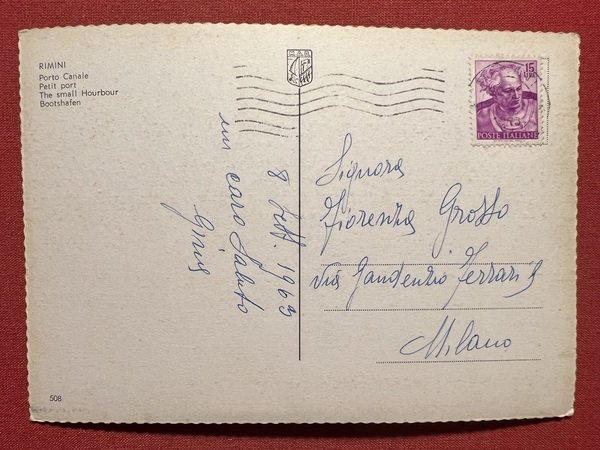 RIMINI
Porto Canale
Petit port
The small Hourbour
Bootshafen
15
LIRE
POSTE ITALIANE
8 Sett. 1963
un caro Saluto
Signora
Fiorenza Grosso
Via Gaudenzio Ferrari 9
Milano
508